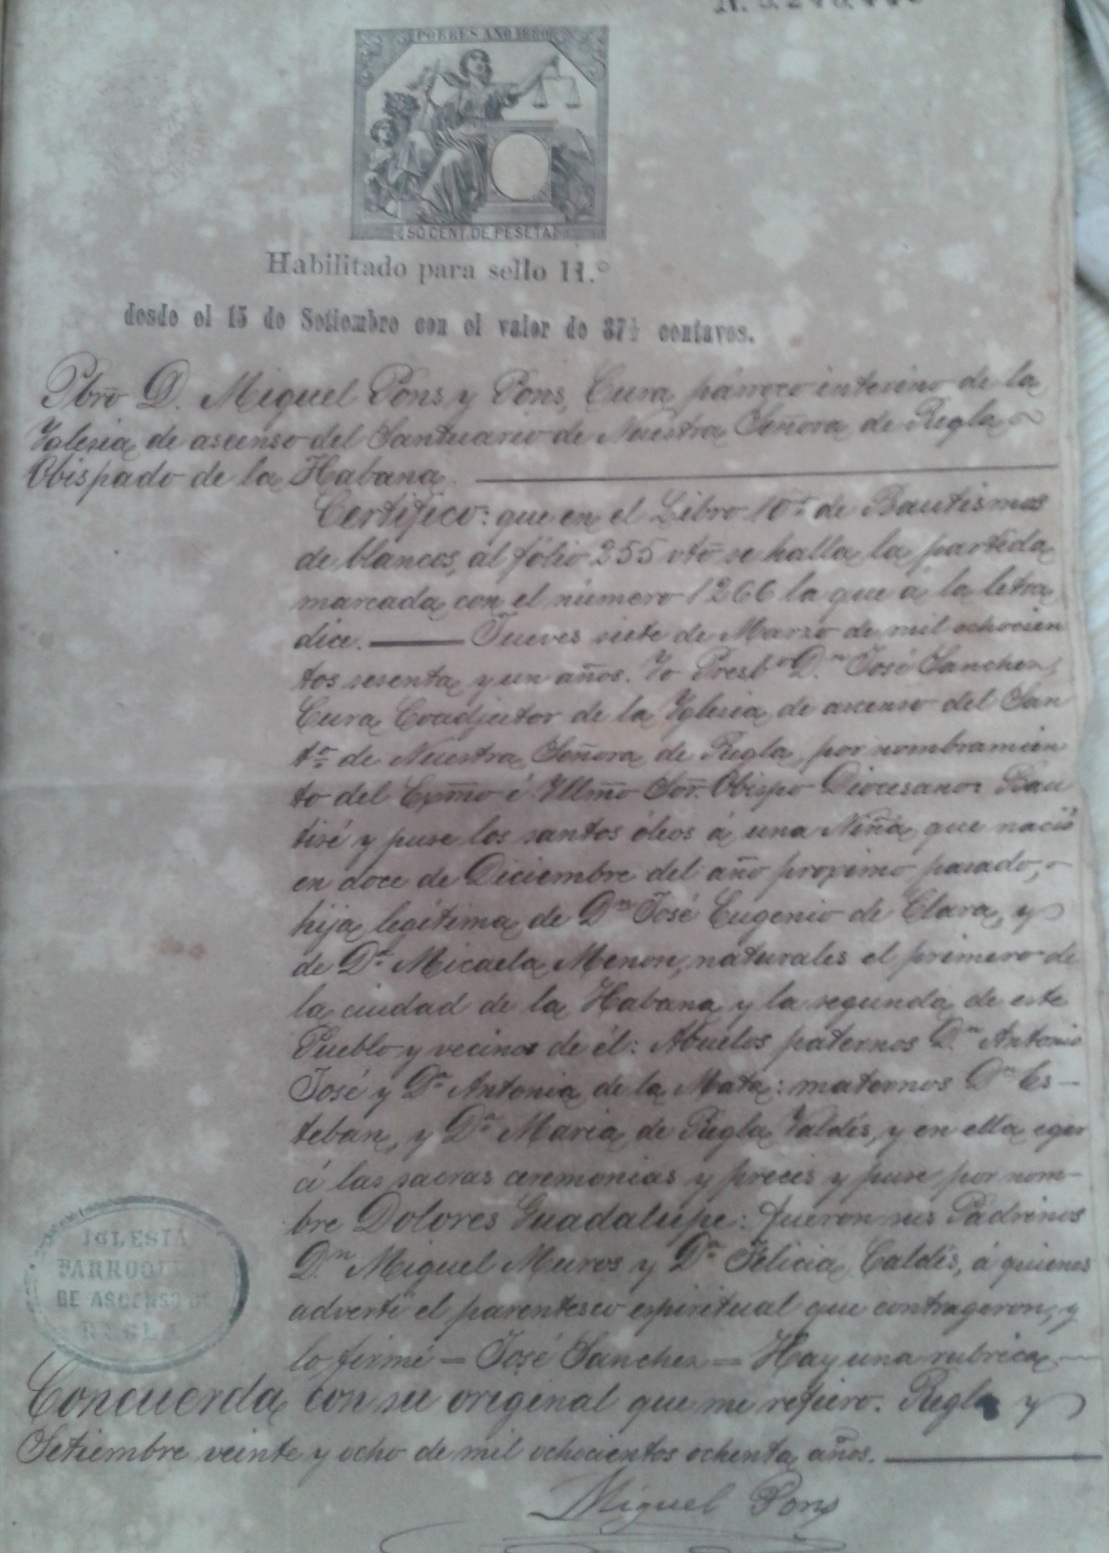 POBRES AÑO 1880
50 CENT. DE PESETA
Habilitado para sello 11.º
desde el 15 de Setiembre con el valor de 37½ centavos.
Pbrō D. Miguel Pons y Pons, Cura párroco interino de la
Yglesia de ascenso del Santuario de Nuestra Señora de Regla
Obispado de la Habana.
Certifico: que en el Libro 10º de Bautismos
de blancos, al fólio 255 vtō se halla la partida
marcada con el número 1266 la que á la letra
dice. — Jueves siete de Marzo de mil ochocien
tos sesenta y un años. Yo Presbº D.n José Sanchez,
Cura Coadjutor de la Yglesia de ascenso del San
tº de Nuestra Señora de Regla, por nombramien
to del Exmō é Yllmō Sor. Obispo Diocesano: Bau
tisé y puse los santos óleos á una Niña que nació
en doce de Diciembre del año proximo pasado,
hija legítima de D.n José Eugenio de Clara, y
de D.ª Micaela Menon, naturales el primero de
la ciudad de la Habana y la segunda de este
Pueblo y vecinos de él: Abuelos paternos D.n Antonio
José y D.ª Antonia de la Mata: maternos D.n Es-
teban, y D.ª María de Regla Valdés, y en ella eger
cí las sacras ceremonias y preces y puse por nom-
bre Dolores Guadalupe: fueron sus Padrinos
D.n Miguel Muros y D.ª Felicia Caldés, á quienes
advertí el parentesco espiritual que contrageron, y
lo firmé = José Sanchez = Hay una rubrica
Concuerda con su original que me refiero. Regla y
Setiembre veinte y ocho de mil ochocientos ochenta años.
Miguel Pons
IGLESIA
PARROQUIAL
DE ASCENSO DE
REGLA